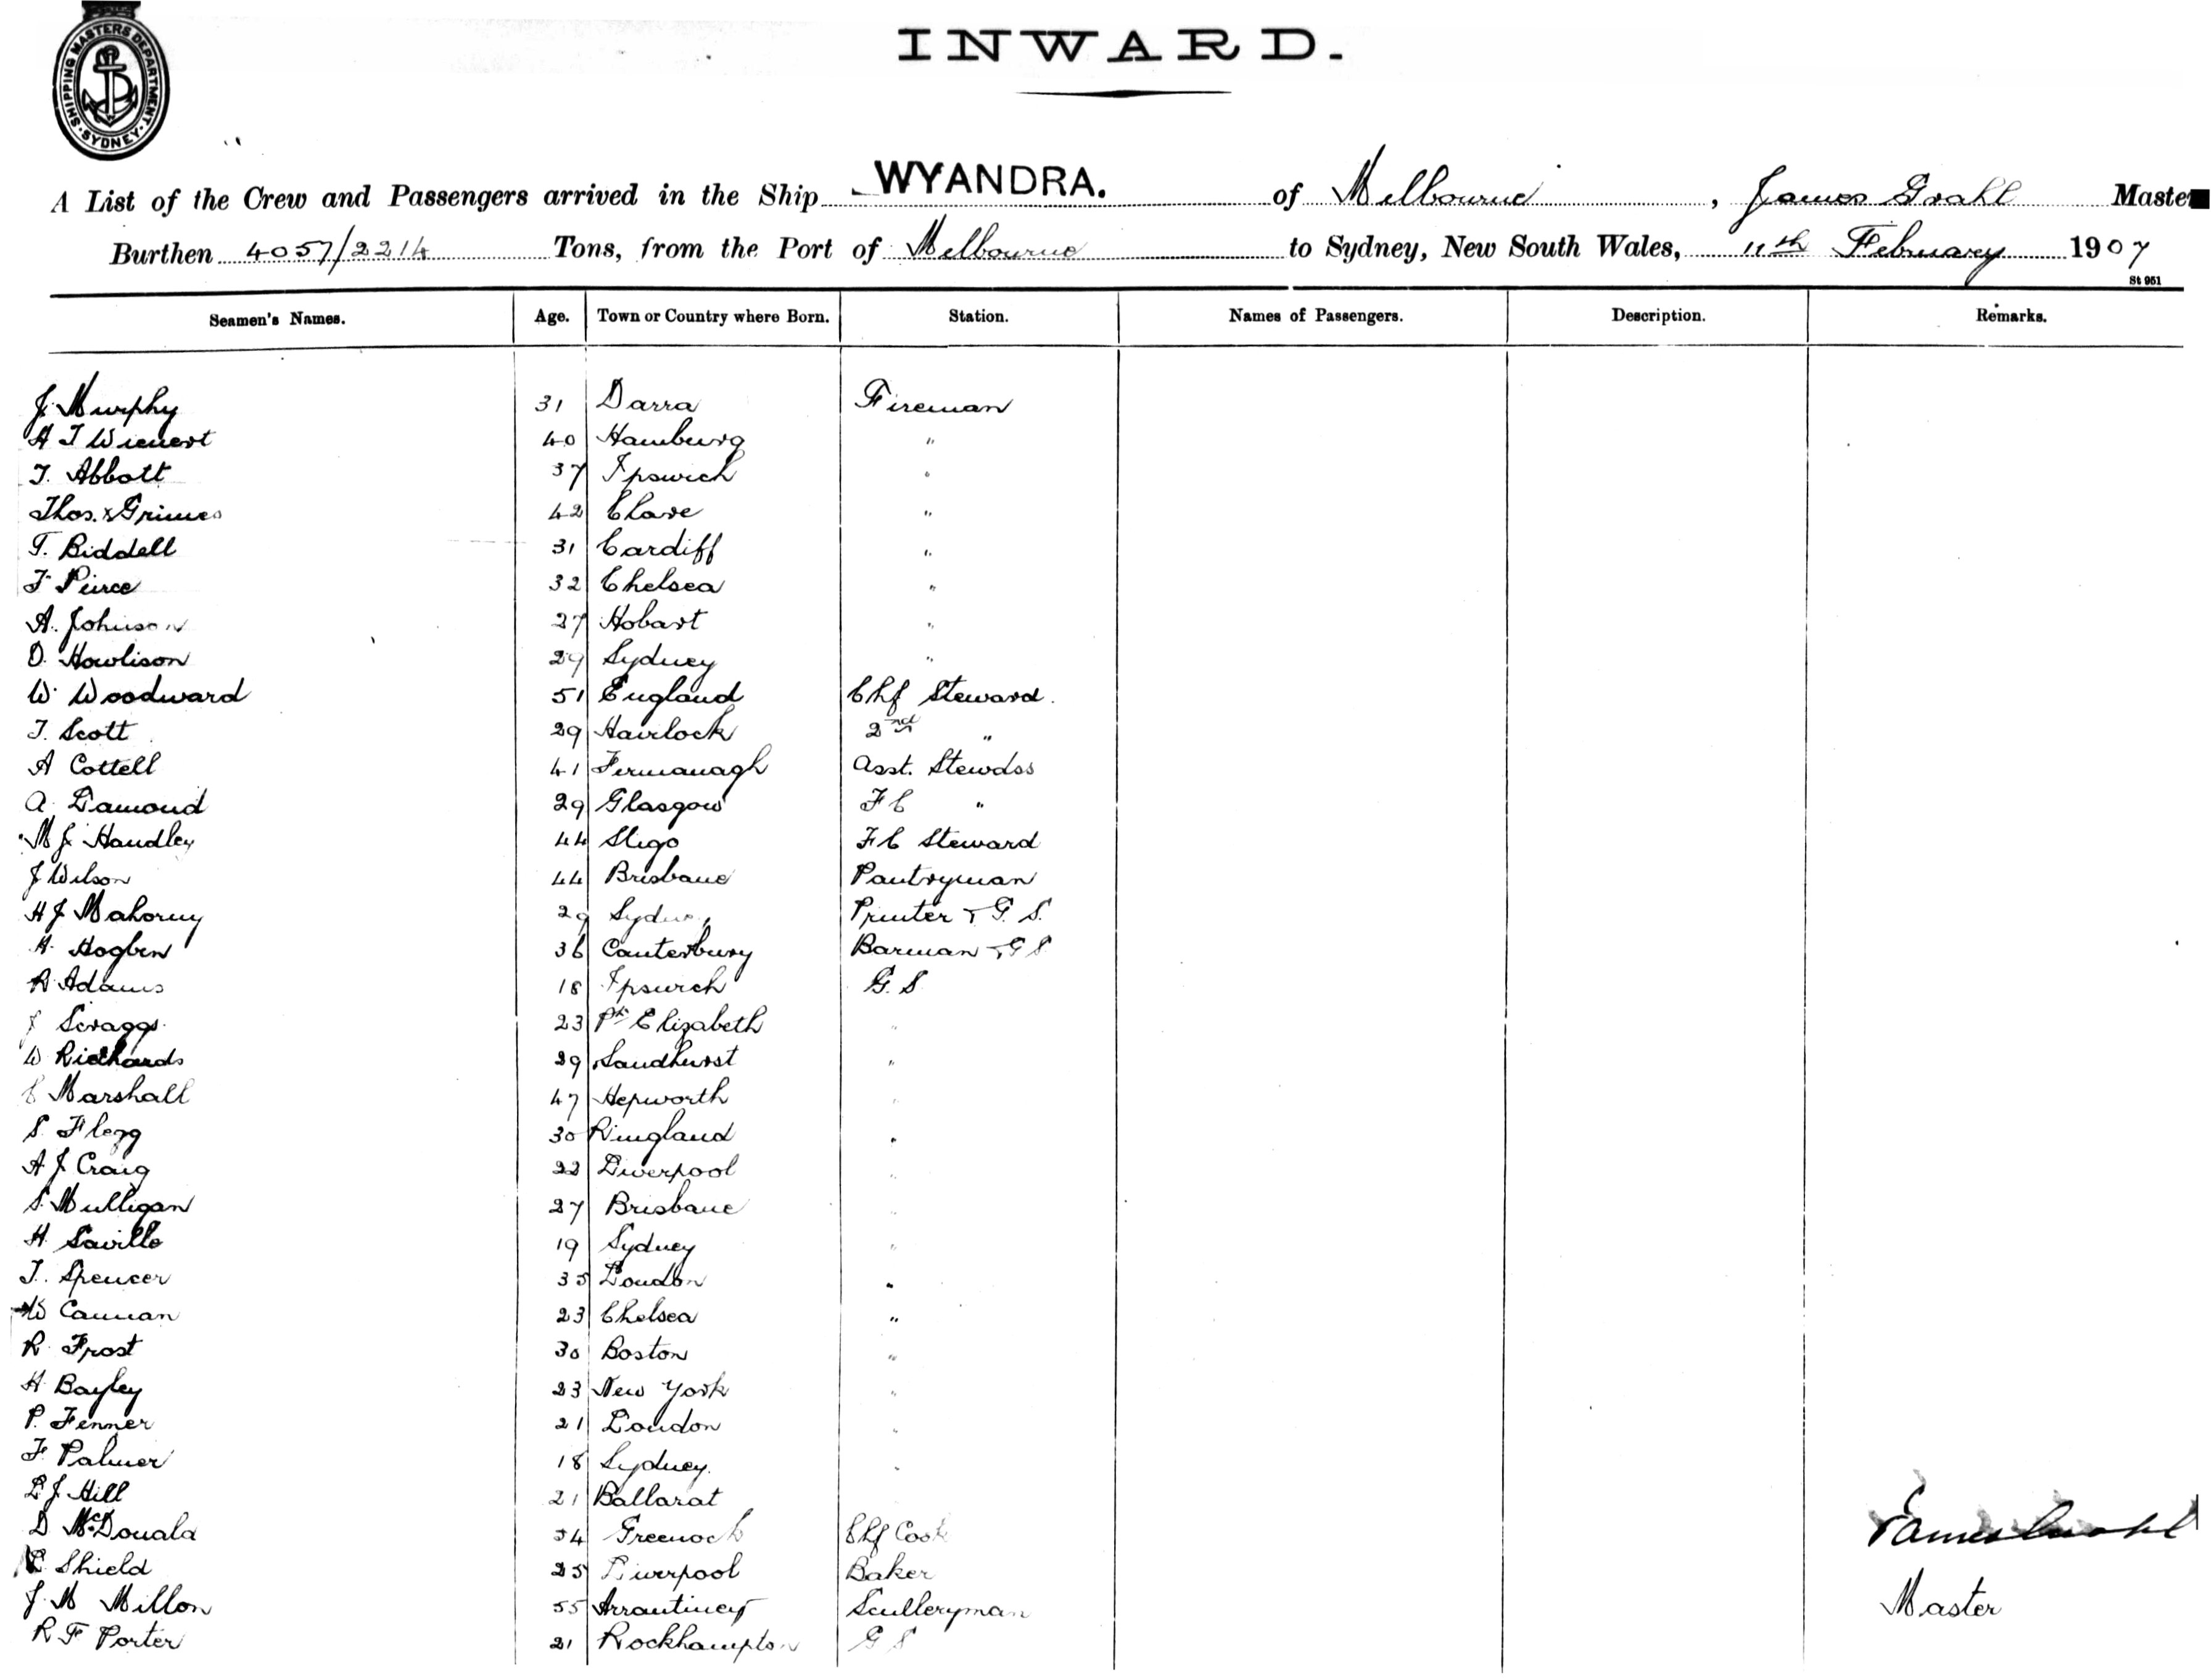 SHIPPING MASTERS DEPARTMENT. SYDNEY
INWARD.
A List of the Crew and Passengers arrived in the Ship WYANDRA. of Melbourne, James Grahl Master
Burthen 4057/2214 Tons, from the Port of Melbourne to Sydney, New South Wales, 11th February 1907
St 951
Seamen's Names. Age. Town or Country where Born. Station. Names of Passengers. Description. Remarks.
J. Murphy 31 Darra Fireman
H T Wienert 40 Hamburg "
T. Abbott 37 Ipswich "
Thos. x Grimes 42 Clare "
T. Biddell 31 Cardiff "
F Peirce 32 Chelsea "
A. Johnson 27 Hobart "
D. Howlison 29 Sydney "
W. Woodward 51 England Chf Steward.
T. Scott 29 Havelock 2nd "
A Cottell 41 Fermanagh Asst. Stewdss
A. Lamond 29 Glasgow F C "
M J Handley 44 Sligo F C Steward
J Wilson 44 Brisbane Pantryman
H J Mahony 29 Sydney Printer & G. S.
H. Hogben 36 Canterbury Barman & G S
R Adams 18 Ipswich G. S
J Scraggs 23 Pt Elizabeth "
W Richards 29 Sandhurst "
C Marshall 47 Hepworth "
S. Flegg 30 Ringland "
A J Craig 22 Liverpool "
S. Mulligan 27 Brisbane "
H. Saville 19 Sydney "
T. Spencer 35 London "
W Cannan 23 Chelsea "
R. Frost 30 Boston "
H Bayley 23 New York "
P. Fenner 21 London "
F. Palmer 18 Sydney. "
L J Hill 21 Ballarat
D McDonald 54 Greenock Chf Cook
L Shield 25 Liverpool Baker
J. M Millon 55 Sculleryman
R F Porter 21 Rockhampton G S
James Grahl
Master